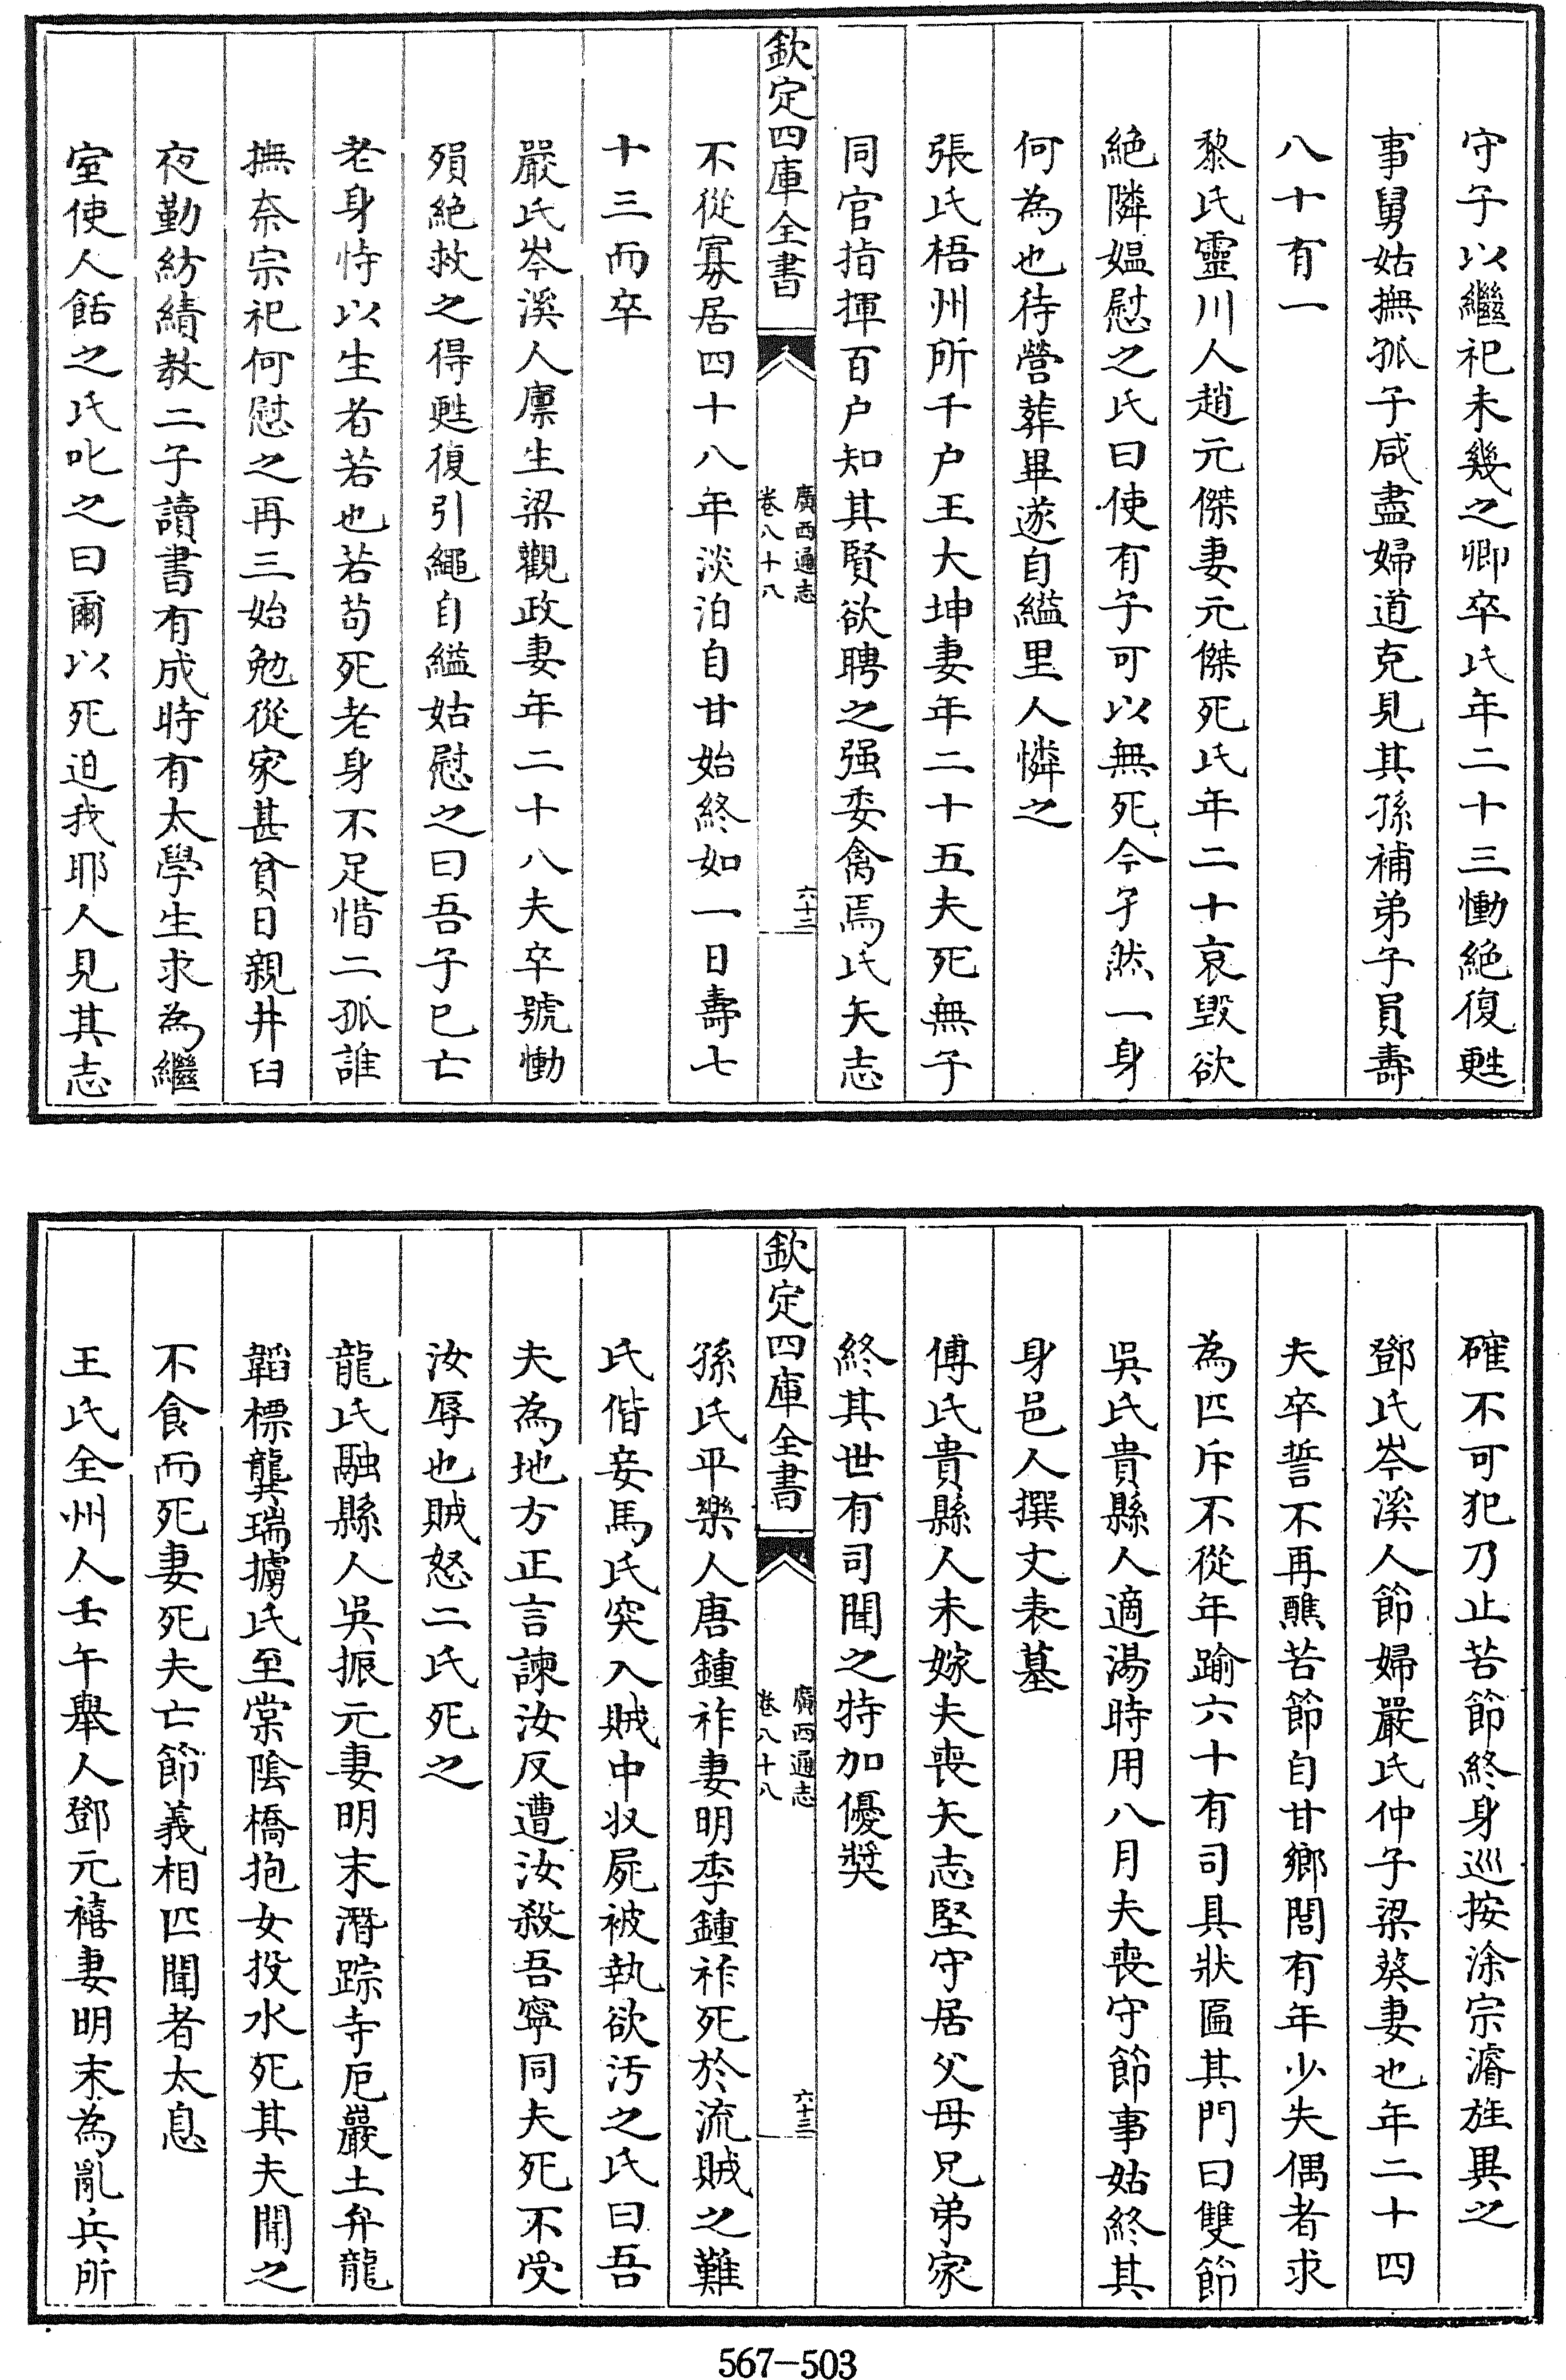 守子以繼祀未幾之卿卒氏年二十三慟絶復甦
事舅姑撫孤子咸盡婦道克見其孫補弟子員壽
八十有一
黎氏靈川人趙元傑妻元傑死氏年二十哀毀欲
絶隣媪慰之氏曰使有子可以無死今孑然一身
何為也待營葬畢遂自縊里人憐之
張氏梧州所千户王大坤妻年二十五夫死無子
同官指揮百户知其賢欲聘之强委禽焉氏矢志
欽定四庫全書
廣西通志
卷八十八
六十三
不從寡居四十八年淡泊自甘始終如一日壽七
十三而卒
嚴氏岑溪人廪生梁觀政妻年二十八夫卒號慟
殞絶救之得甦復引繩自縊姑慰之曰吾子已亡
老身恃以生者若也若苟死老身不足惜二孤誰
撫奈宗祀何慰之再三始勉從家甚貧日親井臼
夜勤紡績教二子讀書有成時有太學生求為繼
室使人餂之氏叱之曰爾以死迫我耶人見其志
確不可犯乃止苦節終身巡按涂宗濬旌異之
鄧氏岑溪人節婦嚴氏仲子梁葵妻也年二十四
夫卒誓不再醮苦節自甘鄉閭有年少失偶者求
為匹斥不從年踰六十有司具狀匾其門曰雙節
吳氏貴縣人適湯時用八月夫喪守節事姑終其
身邑人撰文表墓
傅氏貴縣人未嫁夫喪矢志堅守居父母兄弟家
終其世有司聞之特加優獎
欽定四庫全書
廣西通志
卷八十八
六十三
孫氏平樂人唐鍾祚妻明季鍾祚死於流賊之難
氏偕妾馬氏突入賊中収屍被執欲汚之氏曰吾
夫為地方正言諫汝反遭汝殺吾寧同夫死不受
汝辱也賊怒二氏死之
龍氏融縣人吳振元妻明末潛踪寺厄巖土弁龍
韜標龔瑞擄氏至棠陰橋抱女投水死其夫聞之
不食而死妻死夫亡節義相匹聞者太息
王氏全州人壬午舉人鄧元禧妻明末為亂兵所
567-503